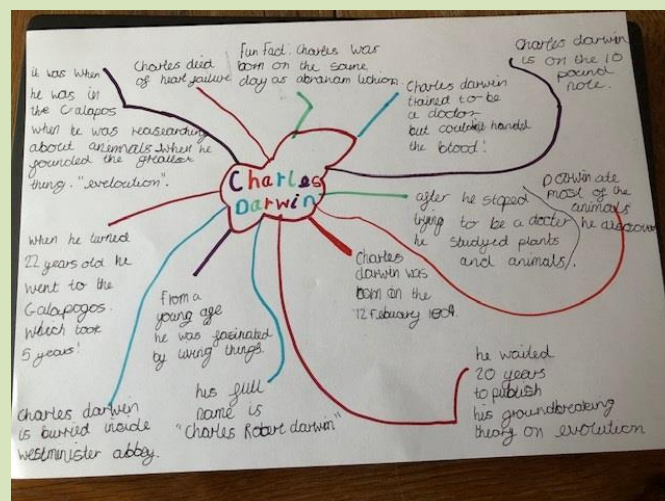 it was when
he was in
the Galapos
when he was reasearching
about animals when he
founded the greatest
thing. "eveloution".
Charles died
of heart failure
Fun Fact: Charles was
born on the same
day as abraham
Charles darwin
trained to be
a doctor
but handel
the blood!
Charles darwin
is on the 10
pound
note.
Charles
Darwin
Darwin ate
most of the
animals
he discover
after he stoped
trying
to be a docter
he studyed plants
and animals!
Charles
darwin was
born on the
12 Febuary 1809.
he waited
20 years
to publish
his groundbreaking
theory on evolution
his full
name is
"Charles Robert darwin"
From a
young age
he was fasinated
by living things.
when he turned
22 years old he
went to the
Galapogos.
which took
5 years!
Charles darwin
is burried inside
westminister abbey.